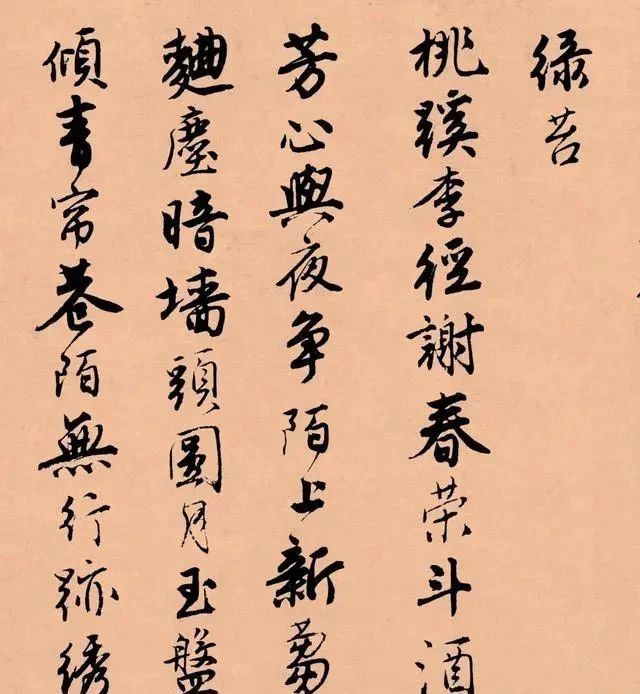 绿苔
桃蹊李径謝春荣斗酒
芳心與夜争陌上新蒭
麯塵暗墙頭圓月玉盤
傾青帘巷陌無行跡绣